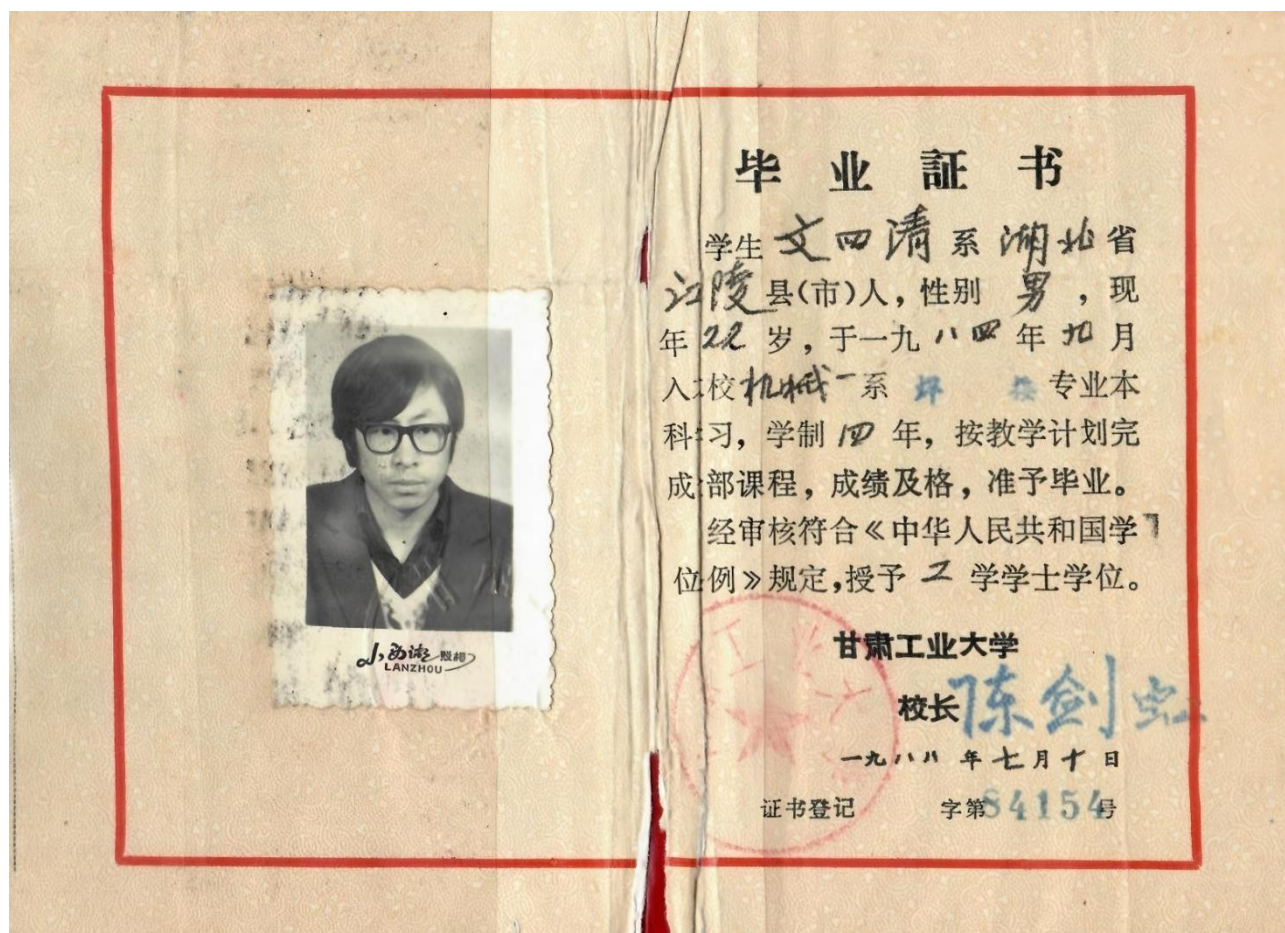 小西湖照相
LANZHOU
毕业証书
学生文四清系湖北省
江陵县(市)人，性别 男，现
年22岁，于一九八四年九月
入校机械一系 焊接专业本
科习，学制四年，按教学计划完
成部课程，成绩及格，准予毕业。
经审核符合《中华人民共和国学
位例》规定，授予工学学士学位。
甘肃工业大学
校长 陈剑虹
一九八八年七月十日
证书登记 字第84154号